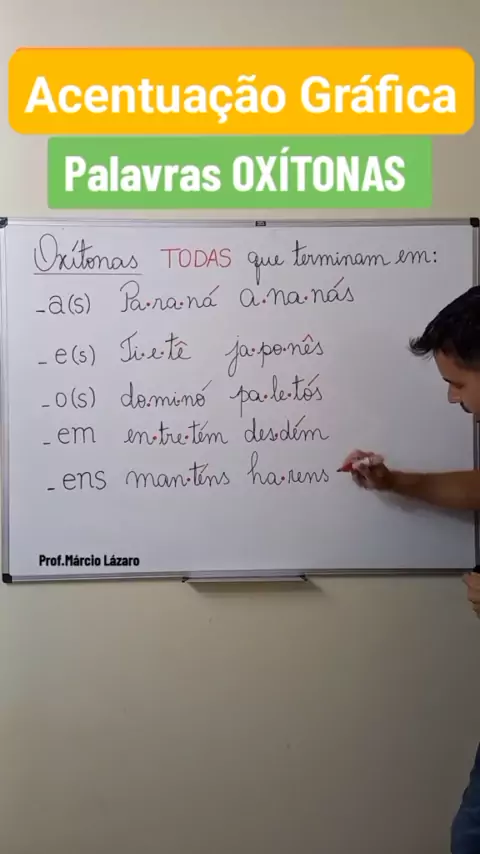 Acentuação Gráfica
Palavras OXÍTONAS
Oxítonas TODAS que terminam em:
-a(s) Pa·ra·ná a·na·nás
-e(s) Ti·e·tê ja·po·nês
-o(s) do·mi·nó pa·le·tós
-em en·tre·tém des·dém
-ens man·téns ha·rens
Prof.Márcio Lázaro